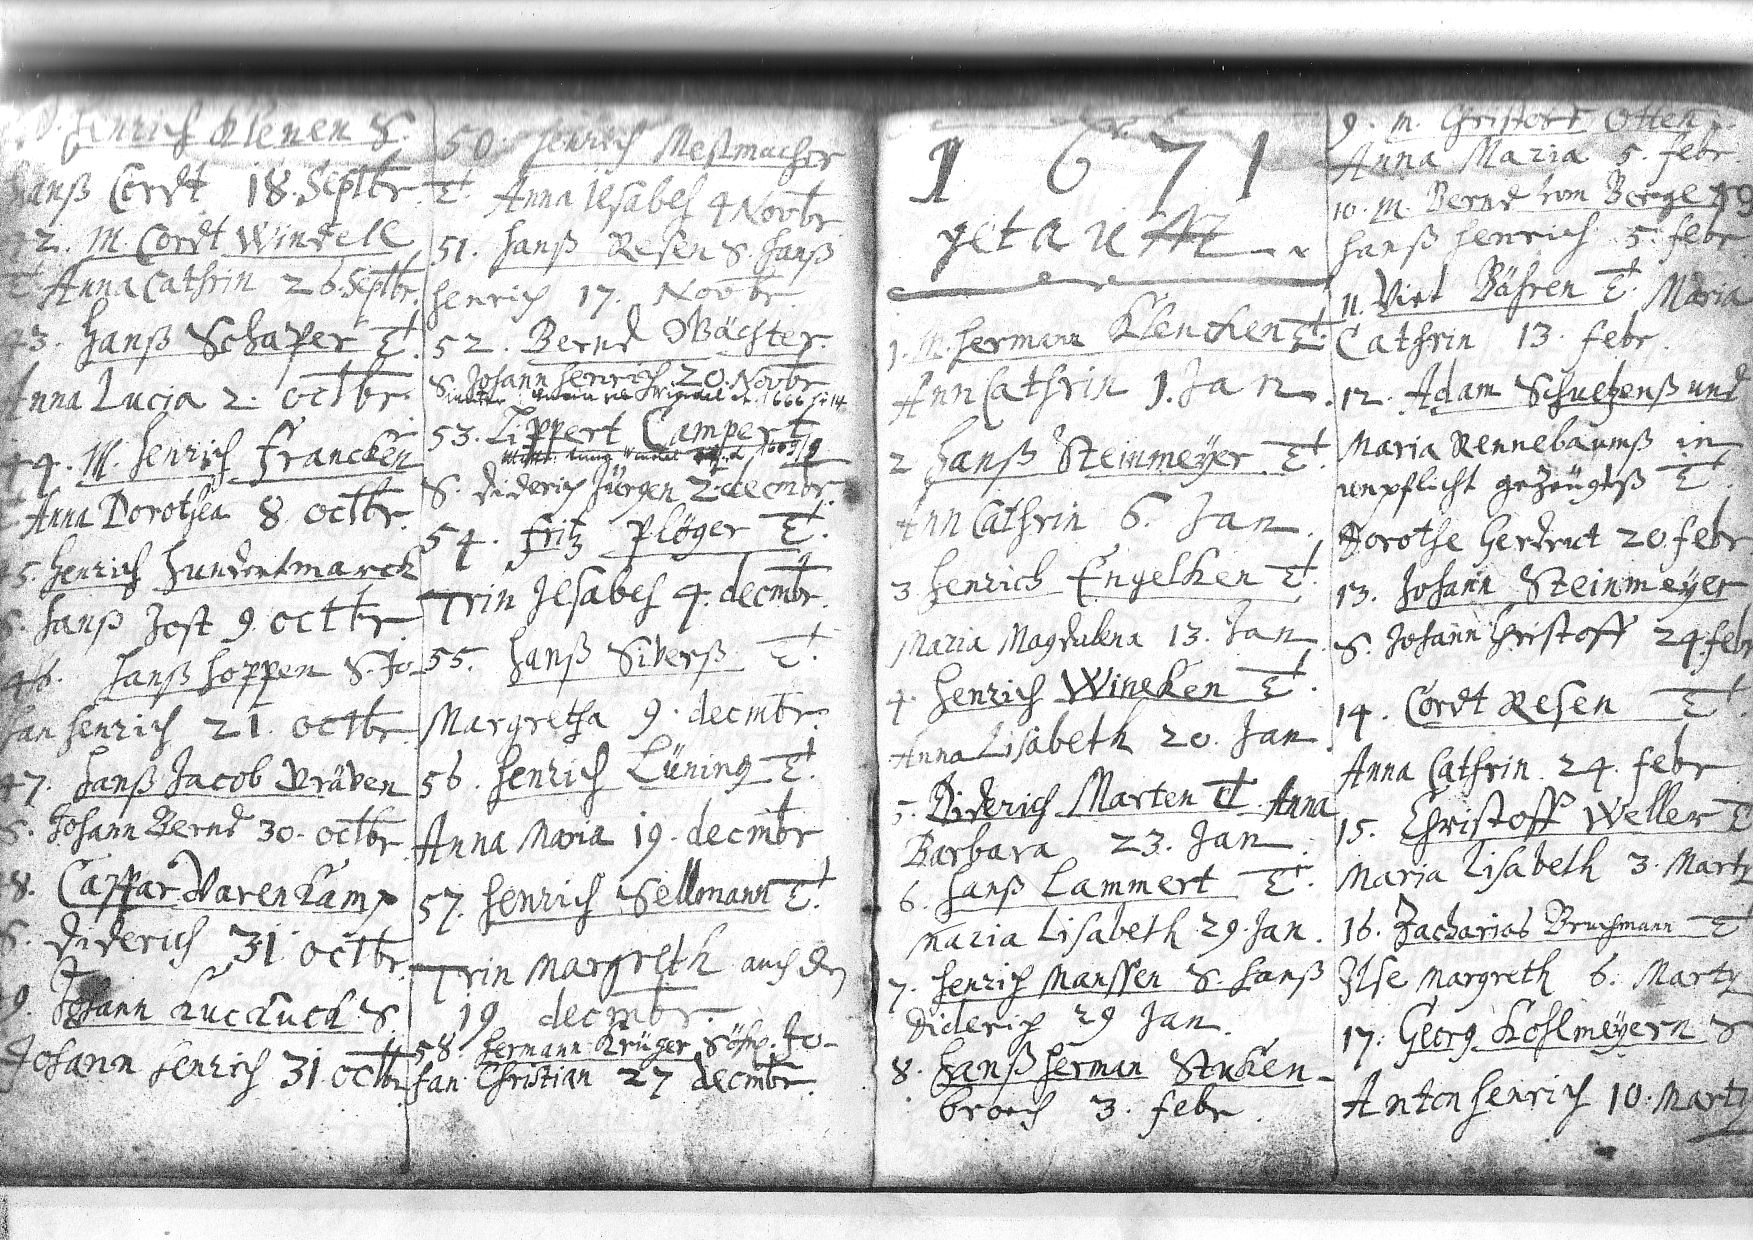 Henrich Klenen S.
Hanß Cordt 18. Septbr.
42. M. Cordt Windell
T. Anna Cathrin 26. Septbr.
43. Hanß Schaper T.
Anna Lucia 2. octbr.
44. M. Henrich Francken
T. Anna Dorothea 8. octbr.
45. Henrich Hundertmarck
S. Hanß Jost 9. octbr.
46. Hanß Hoppen S. Jo-
han Henrich 21. octbr.
47. Hanß Jacob Vräven
S. Johann Bernd 30. octbr.
48. Caspar Varenkamp
S. Diderich 31. octbr.
49. Johann Kuckuck S.
Johann Henrich 31. octbr.
50. Henrich Meßmacher
T. Anna Ilsabeh 4 Novbr
51. Hanß Resen S. Hanß
Henrich 17. Novbr
52. Bernd Wächter
S. Johann Henrich 20. Novbr
53. Lippert Campert
S. Diderich Jürgen 2. decmbr.
54. Fritz Plöger T.
Trin Ilsabeh 4. decmbr.
55. Hanß Siverß T.
Margretha 9. decmbr.
56. Henrich Lüning T.
Anna Maria 19. decmbr
57. Henrich Sellmann T.
Trin Margreth auch den
19 decmbr.
58. Hermann Krüger Söhn. Jo-
han Christian 27 decmbr.
1671
getaufft
1. M. Hermann Klencken T.
Ann Cathrin 1. Jan.
2 Hanß Steinmeyer T.
Ann Cathrin 6. Jan.
3 Henrich Engelken T.
Maria Magdalena 13. Jan.
4. Henrich Wineken T.
Anna Lisabeth 20. Jan.
5. Diderich Marten T. Anna
Barbara 23. Jan.
6. Hanß Lammert T.
Maria Lisabeth 29. Jan.
7. Henrich Manssen S. Hanß
Diderich 29 Jan.
8. Hanß Herman Stuken-
broch 3. febr.
9. M. Christoff Otten
Anna Maria 5. febr.
10. M. Bernd vom Berge
Hanß Henrich 5. febr.
11. Viet Bähren T. Maria
Cathrin 13. febr.
12. Adam Schultzenß und
Maria Rennebaumß in
unpflicht gezeugtß T.
Dorothe Gerdrut 20. febr
13. Johann Steinmeyer
S. Johann Christoff 24. febr
14. Cordt Resen T.
Anna Cathrin 24. febr
15. Christoff Weller T
Maria Lisabeth 3. Marty
16. Zacharias Bruchmann T
Ilse Margreth 6. Marty
17. Georg Kohlmeyern S
Anton Henrich 10. Marty